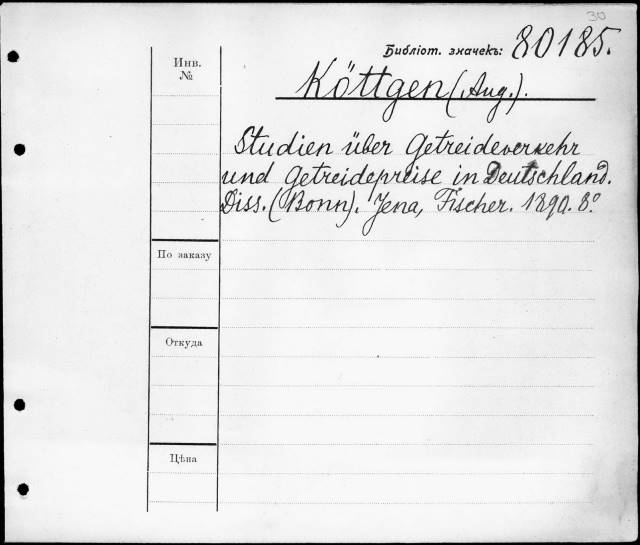 30
Библіот. значекъ: 80185.
Инв.
№
Köttgen (Aug.).
Studien über Getreideverkehr
und Getreidepreise in Deutschland.
Diss. (Bonn). Jena, Fischer. 1890. 8º.
По заказу
Откуда
Цѣна